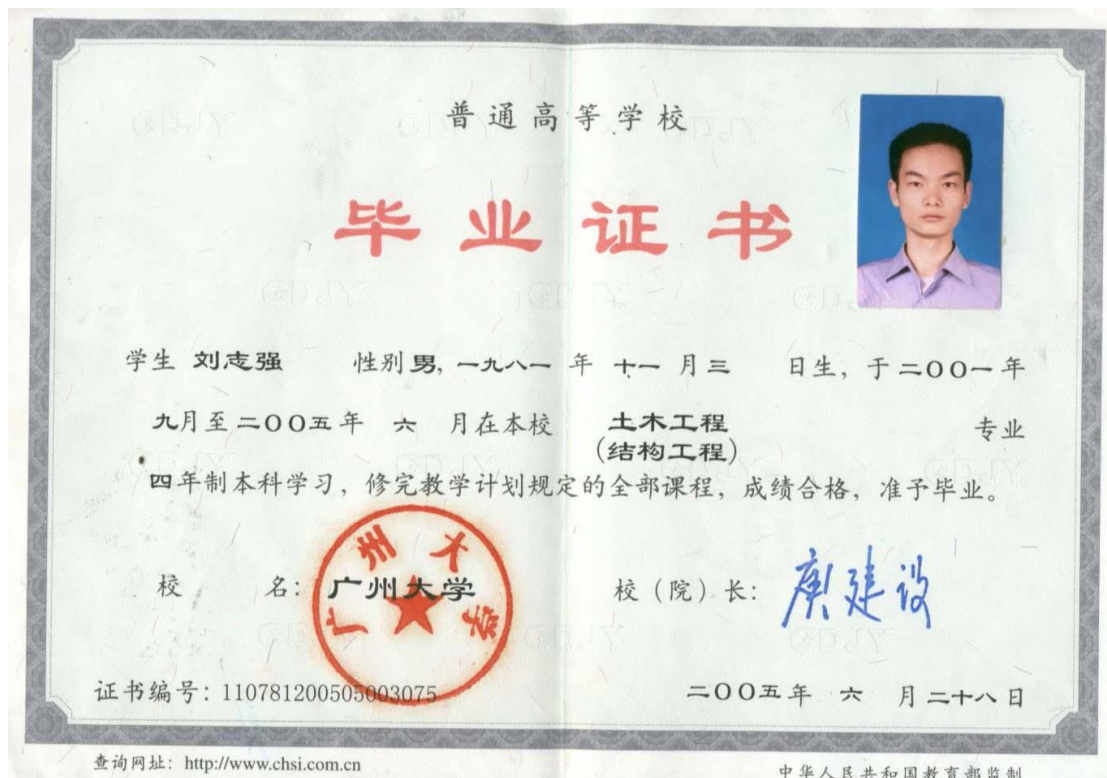 普通高等学校
毕业证书
学生 刘志强 性别 男, 一九八一 年 十一 月 三 日生, 于 二〇〇一 年
九月至 二〇〇五 年 六 月在本校 土木工程 专业
(结构工程)
四年制本科学习, 修完教学计划规定的全部课程, 成绩合格, 准予毕业。
广州大学
校 名: 广州大学 校(院)长: 庾建设
证书编号: 110781200505003075 二〇〇五 年 六 月 二十八 日
查询网址: http://www.chsi.com.cn 中华人民共和国教育部监制